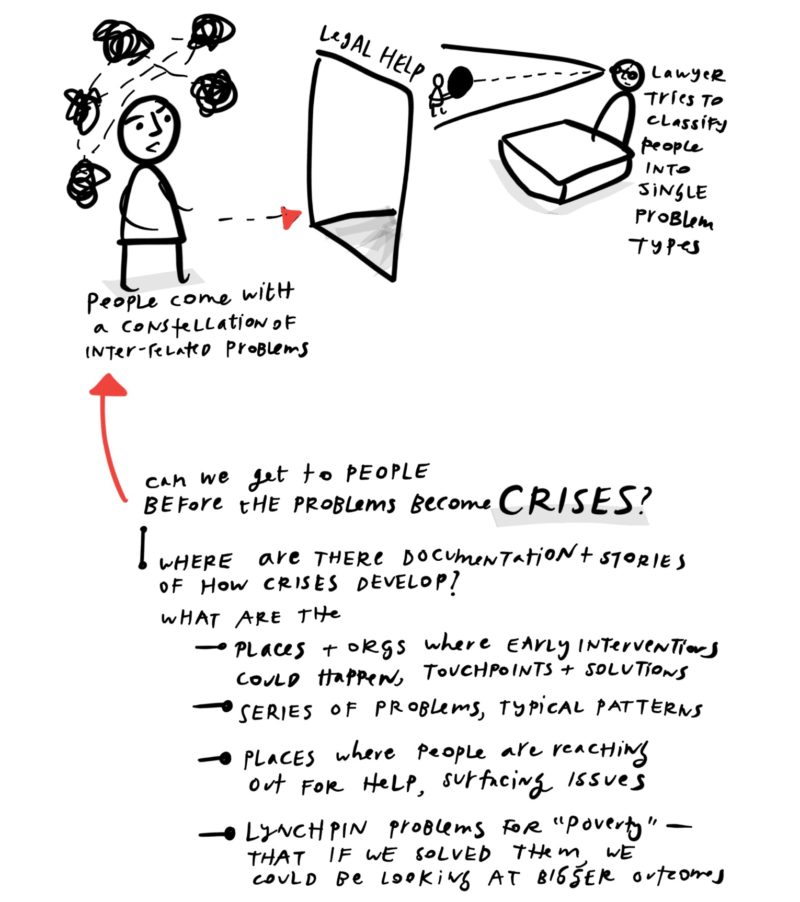 LEGAL HELP
LAWYER
TRIES TO
CLASSIFY
PEOPLE
INTO
SINGLE
PROBLEM
TYPES
PEOPLE COME WITH
a CONSTELLATION OF
INTER-RELATED PROBLEMS
CAN WE GET TO PEOPLE
BEFORE THE PROBLEMS BECOME CRISES?
WHERE are THERE DOCUMENTATION + STORIES
OF HOW CRISES DEVELOP?
WHAT ARE THE
PLACES + ORGS WHERE EARLY INTERVENTIONS
COULD HAPPEN, TOUCHPOINTS + SOLUTIONS
SERIES OF PROBLEMS, TYPICAL PATTERNS
PLACES WHERE PEOPLE ARE REACHING
OUT FOR HELP, SURFACING ISSUES
LYNCHPIN PROBLEMS FOR "POVERTY" —
THAT IF WE SOLVED THEM, WE
COULD BE LOOKING AT BIGGER OUTCOMES